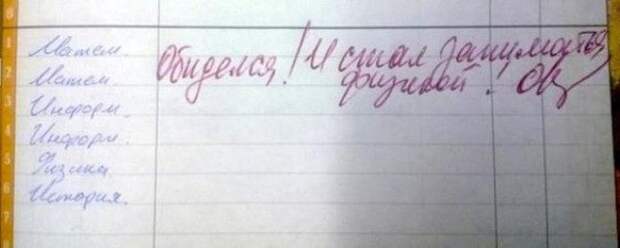 8
1 Матем.
Обиделся! И стал заниматься
2 Матем.
физикой!
3 Информ.
4 Информ.
5 Физика
6 История.
7